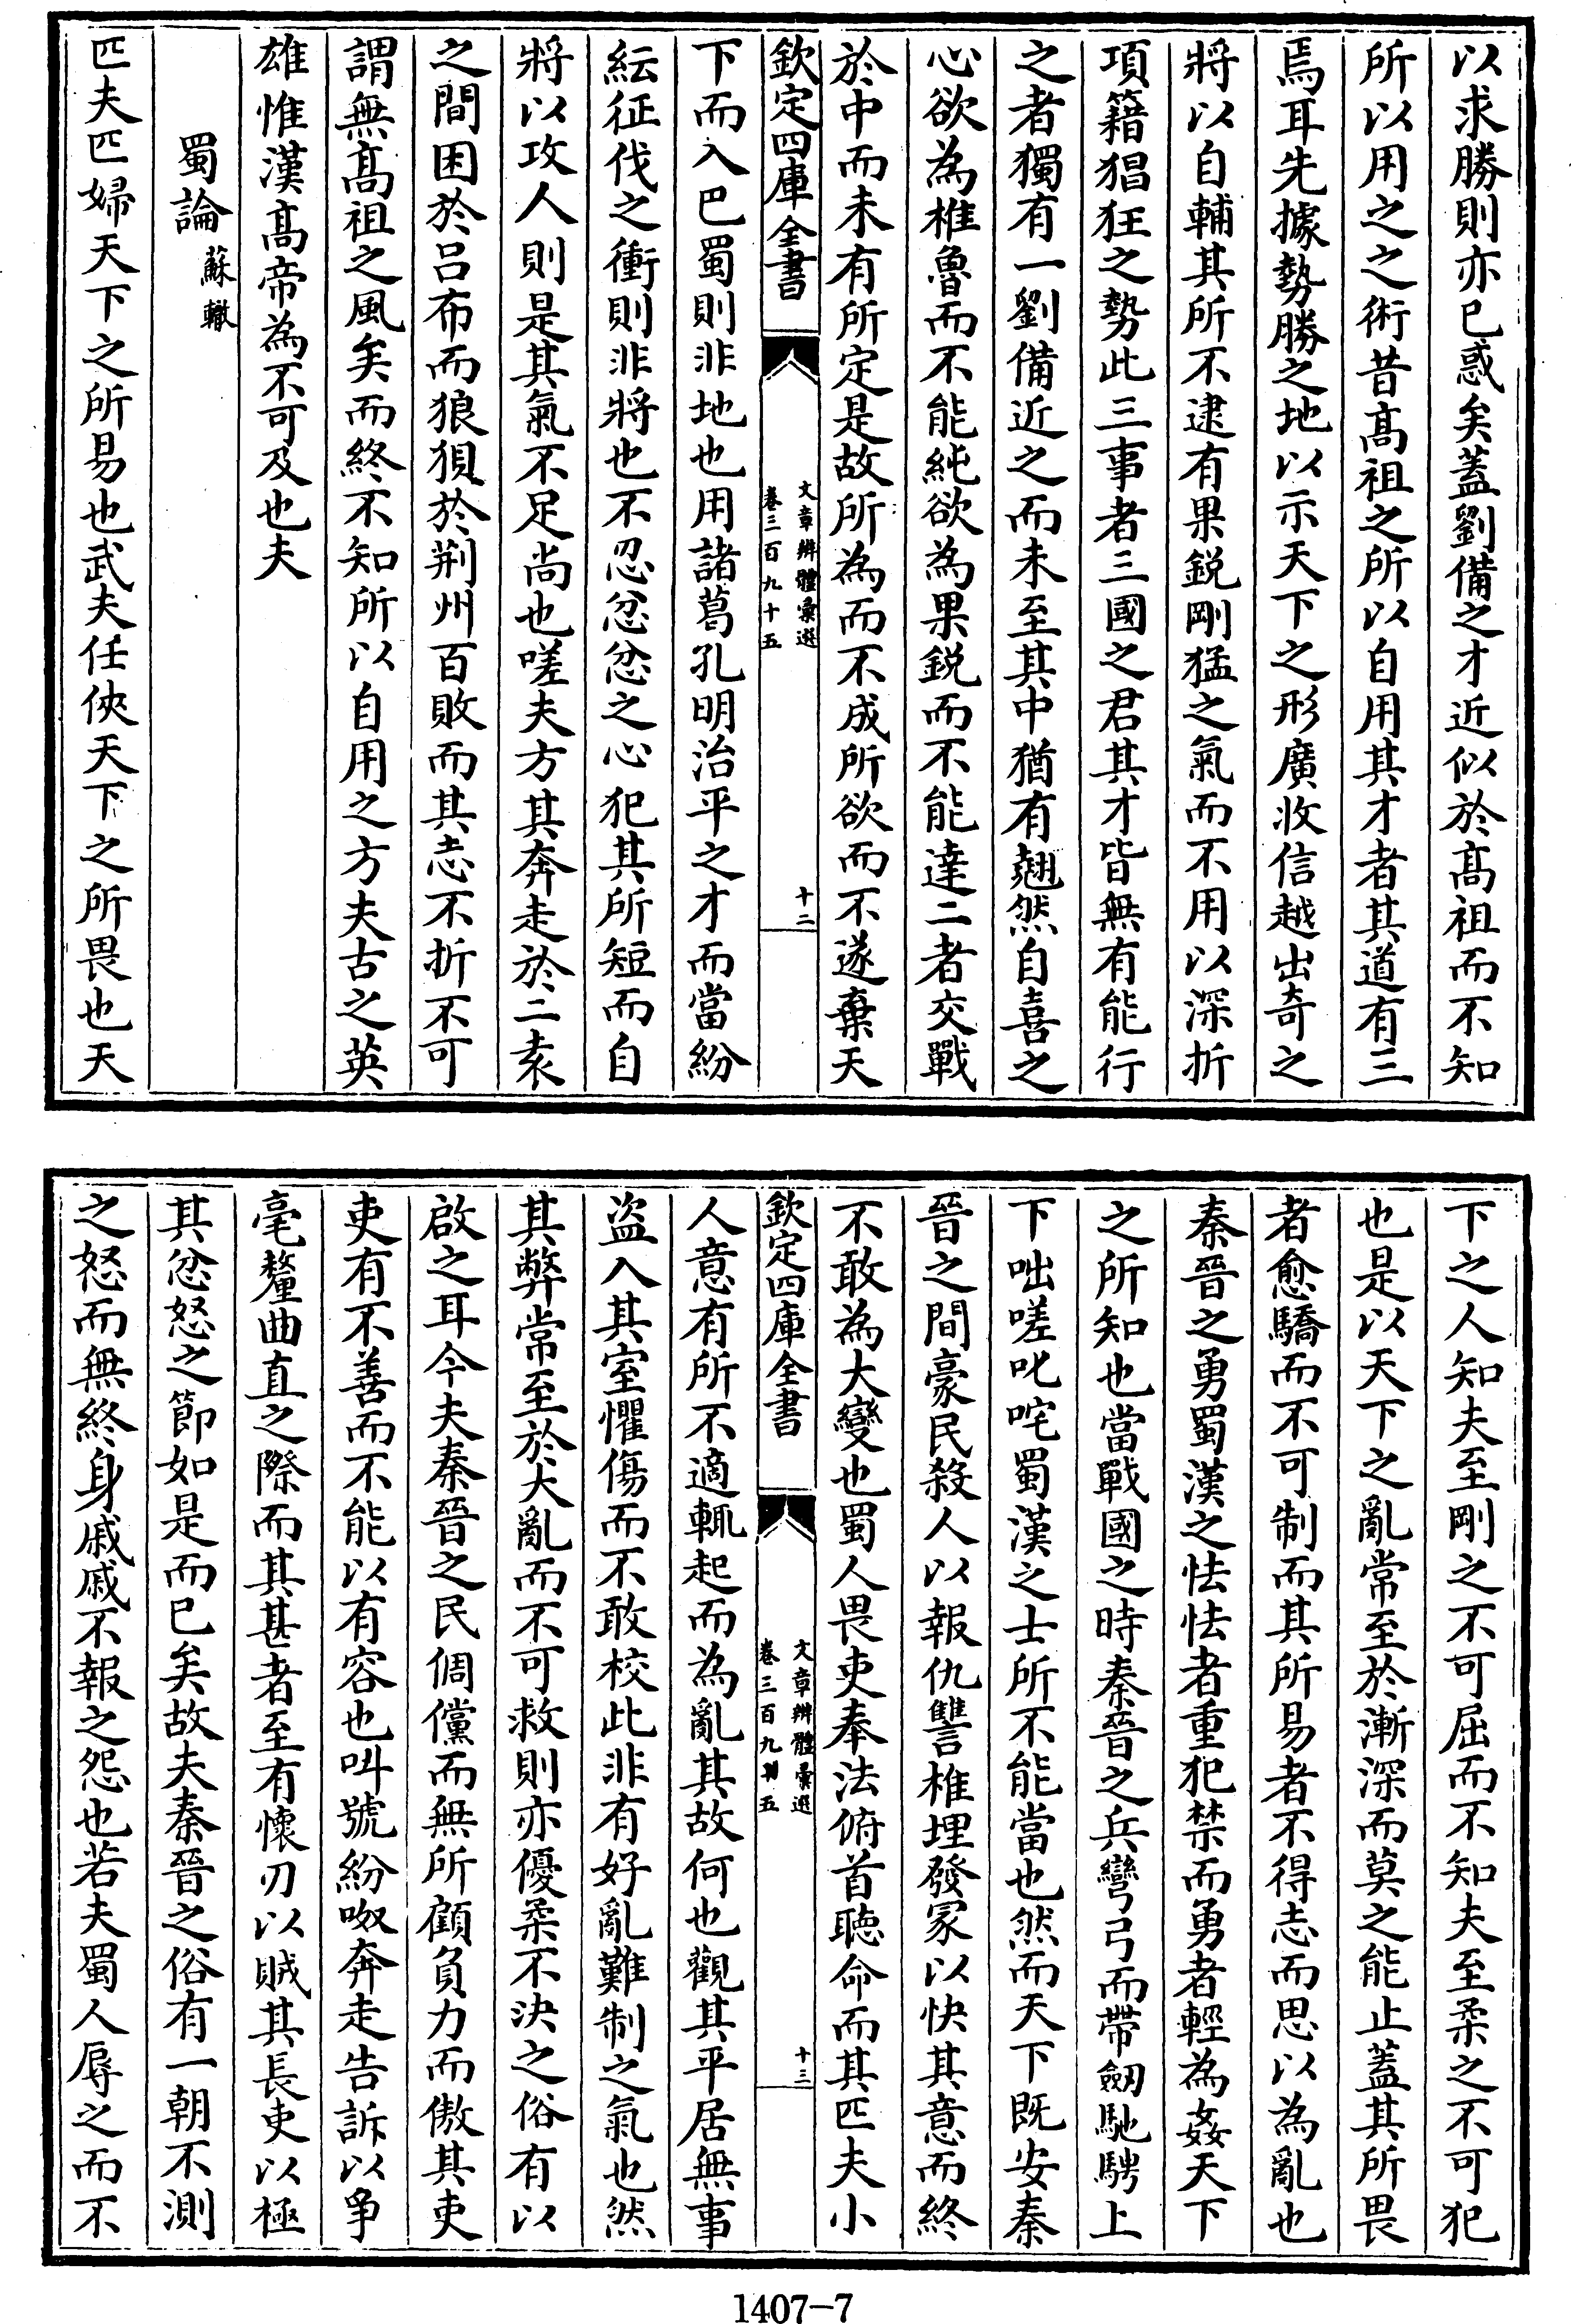 以求勝則亦已惑矣蓋劉備之才近似於髙祖而不知
所以用之之術昔髙祖之所以自用其才者其道有三
焉耳先據勢勝之地以示天下之形廣收信越出奇之
將以自輔其所不逮有果鋭剛猛之氣而不用以深折
項籍猖狂之勢此三事者三國之君其才皆無有能行
之者獨有一劉備近之而未至其中猶有翹然自喜之
心欲為椎魯而不能純欲為果鋭而不能達二者交戰
於中而未有所定是故所為而不成所欲而不遂棄天
欽定四庫全書
文章辨體彙選
卷三百九十五
十二
下而入巴蜀則非地也用諸葛孔明治平之才而當紛
紜征伐之衝則非將也不忍忿忿之心犯其所短而自
將以攻人則是其氣不足尚也嗟夫方其奔走於二袁
之間困於呂布而狼狽於荆州百敗而其志不折不可
謂無髙祖之風矣而終不知所以自用之方夫古之英
雄惟漢髙帝為不可及也夫
蜀論蘇轍
匹夫匹婦天下之所易也武夫任俠天下之所畏也天
下之人知夫至剛之不可屈而不知夫至柔之不可犯
也是以天下之亂常至於漸深而莫之能止蓋其所畏
者愈驕而不可制而其所易者不得志而思以為亂也
秦晉之勇蜀漢之怯怯者重犯禁而勇者輕為姦天下
之所知也當戰國之時秦晉之兵彎弓而帶劒馳騁上
下咄嗟叱咤蜀漢之士所不能當也然而天下既安秦
晉之間豪民殺人以報仇讐椎埋發冢以快其意而終
不敢為大變也蜀人畏吏奉法俯首聽命而其匹夫小
欽定四庫全書
文章辨體彙選
卷三百九十五
十三
人意有所不適輒起而為亂其故何也觀其平居無事
盜入其室懼傷而不敢校此非有好亂難制之氣也然
其弊常至於大亂而不可救則亦優柔不決之俗有以
啟之耳今夫秦晉之民倜儻而無所顧負力而傲其吏
吏有不善而不能以有容也叫號紛呶奔走告訴以爭
毫釐曲直之際而其甚者至有懷刃以賊其長吏以極
其忿怒之節如是而已矣故夫秦晉之俗有一朝不測
之怒而無終身戚戚不報之怨也若夫蜀人辱之而不
1407-7